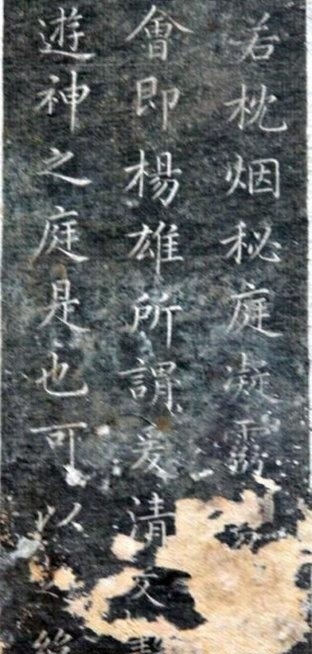 若枕烟秘庭凝霧
會即楊雄所謂爰清
遊神之庭是也可以